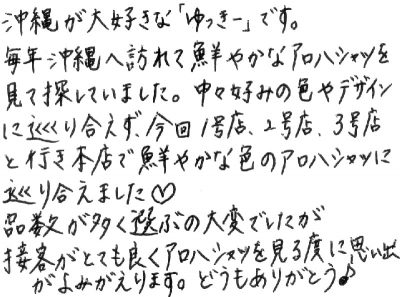 沖縄が大好きな「ゆっきー」です。
毎年沖縄へ訪れて鮮やかなアロハシャツを
見て探していました。中々好みの色やデザイン
に巡くり合えず、今回1号店、2号店、3号店
と行き本店で鮮やかな色のアロハシャツに
巡り合えました♡
品数が多く選ぶの大変でしたが
接客がとても良くアロハシャツを見る度に思い出
がよみがえります。どうもありがとう♪